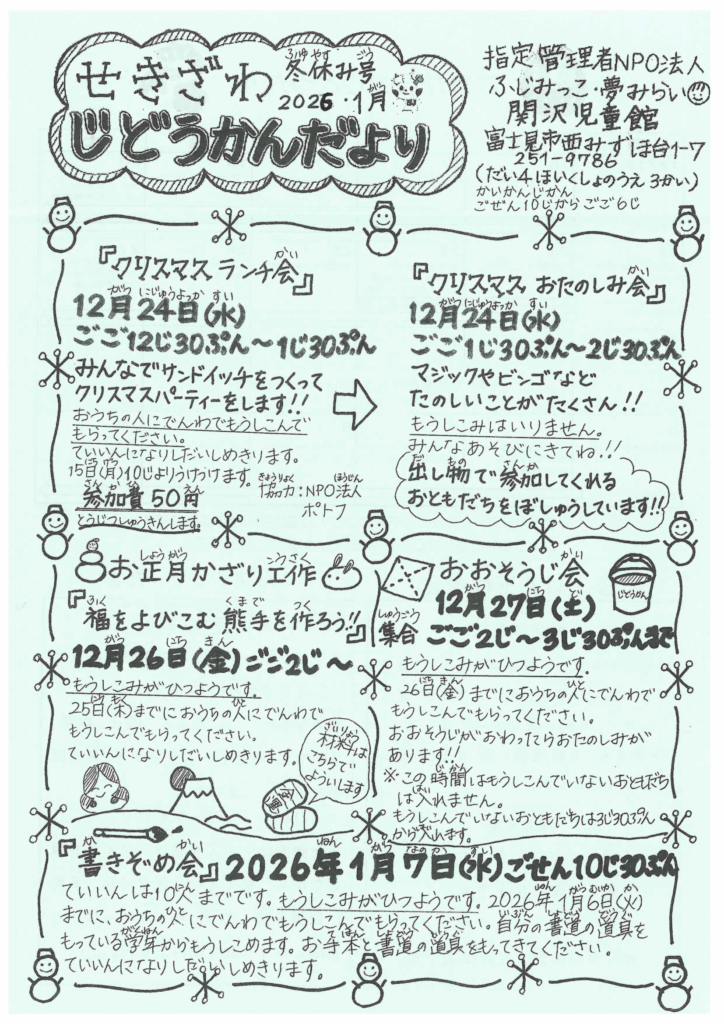 せきざわ
冬休み号
2026・1月
じどうかんだより
指定管理者NPO法人
ふじみっこ・夢みらい
関沢児童館
富士見市西みずほ台1-7
251-9786
(だい4ほいくしょのうえ 3かい)
かいかんじかん
ごぜん10じから ごご6じ
『クリスマス ランチ会』
12月24日(水)
ごご12じ30ぷん〜1じ30ぷん
みんなでサンドイッチをつくって
クリスマスパーティーをします!!
おうちの人にでんわでもうしこんで
もらってください。
ていいんになりしだいしめきります。
15日(月)10じよりうけつけます。
参加費50円
とうじつしゅうきんします。
協力:NPO法人
ポトフ
『クリスマス おたのしみ会』
12月24日(水)
ごご1じ30ぷん〜2じ30ぷん
マジックやビンゴなど
たのしいことがたくさん!!
もうしこみはいりません。
みんなあそびにきてね!!
出し物で参加してくれる
おともだちをぼしゅうしています!!
お正月かざり工作
『福をよびこむ 熊手を作ろう!!』
12月26日(金)ごご2じ〜
もうしこみがひつようです。
25日(木)までにおうちの人にでんわで
もうしこんでもらってください。
ていいんになりしだいしめきります。
材料は
こちらで
よういします
おおそうじ会
じどうかん
12月27日(土)
集合 ごご2じ〜3じ30ぷんまで
もうしこみがひつようです。
26日(金)までにおうちの人にでんわで
もうしこんでもらってください。
おおそうじがおわったらおたのしみが
あります!!
※この時間はもうしこんでいないおともだち
は入れません。
もうしこんでいないおともだちは3じ30ぷん
から入れます。
『書きぞめ会』2026年1月7日(水)ごぜん10じ30ぷん
ていいんは10人までです。もうしこみがひつようです。2026年1月6日(火)
までに、おうちの人にでんわでもうしこんでもらってください。自分の書道の道具を
もっている学年からもうしこめます。お手本と書道の道具をもってきてください。
ていいんになりしだいしめきります。